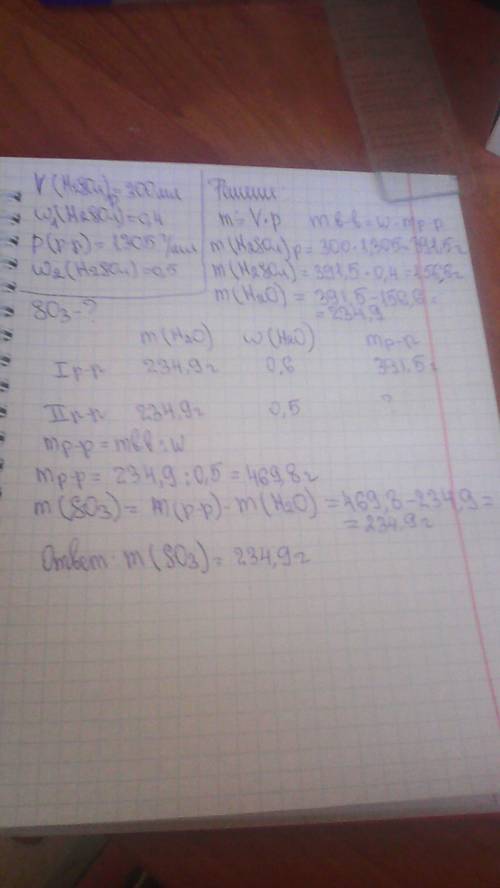 V(H2SO4)р=300мл
w1(H2SO4)=0,4
ρ(р-р)=1,305 г/мл
w2(H2SO4)=0,5
SO3-?
Решение
m=V·ρ m в-в=w·mр-р
m(H2SO4)р=300·1,305=391,5г
m(H2SO4)=391,5·0,4=156,6г
m(H2O)=391,5-156,6=
=234,9
m(H2O) w(H2O) mр-р
I р-р 234,9г 0,6 391,5г
II р-р 234,9г 0,5 ?
mр-р=mвв:w
mр-р=234,9:0,5=469,8г
m(SO3)=m(р-р)-m(H2O)=469,8-234,9=
=234,9г
Ответ: m(SO3)=234,9г